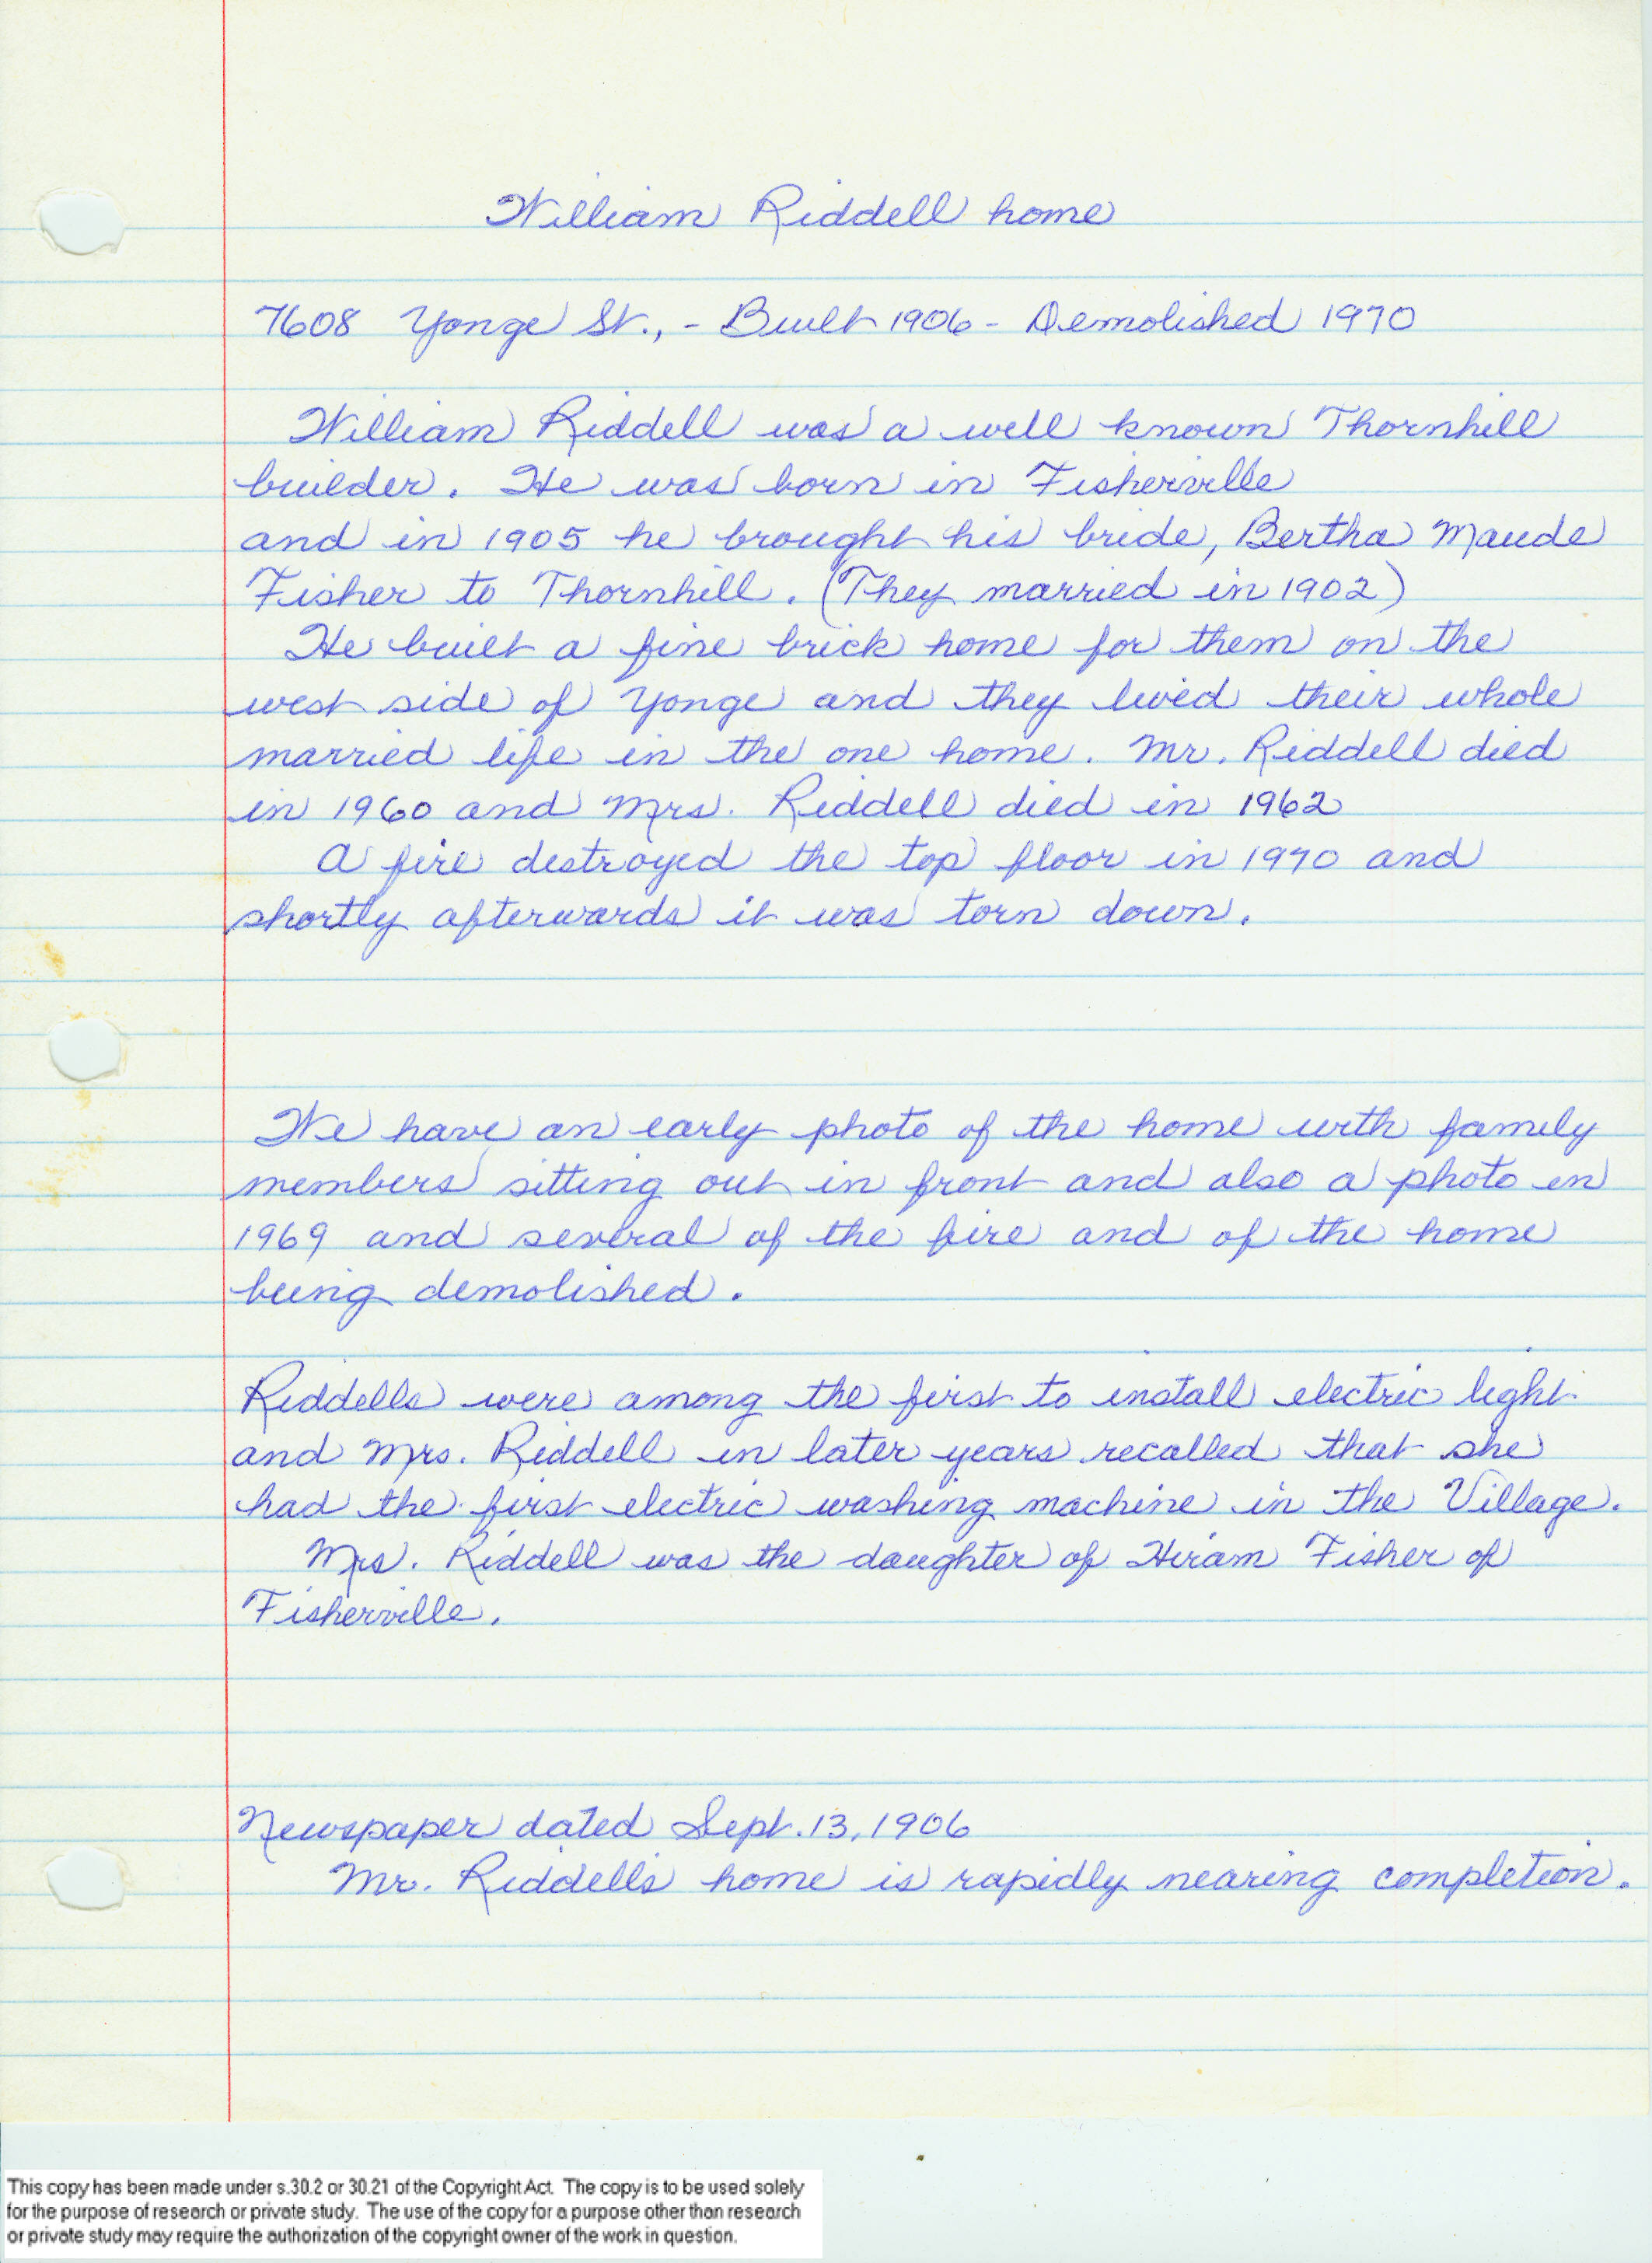 William Riddell home
7608 Yonge St., - Built 1906 - Demolished 1970
William Riddell was a well known Thornhill
builder. He was born in Fisherville
and in 1905 he brought his bride, Bertha Maude
Fisher to Thornhill. (They married in 1902)
He built a fine brick home for them on the
west side of Yonge and they lived their whole
married life in the one home. Mr. Riddell died
in 1960 and Mrs. Riddell died in 1962
A fire destroyed the top floor in 1970 and
shortly afterwards it was torn down.
We have an early photo of the home with family
members sitting out in front and also a photo in
1969 and several of the fire and of the home
being demolished.
Riddells were among the first to install electric light
and Mrs. Riddell in later years recalled that she
had the first electric washing machine in the Village.
Mrs. Riddell was the daughter of Hiram Fisher of
Fisherville.
Newspaper dated Sept. 13, 1906
Mr. Riddell's home is rapidly nearing completion.
This copy has been made under s.30.2 or 30.21 of the Copyright Act. The copy is to be used solely
for the purpose of research or private study. The use of the copy for a purpose other than research
or private study may require the authorization of the copyright owner of the work in question.